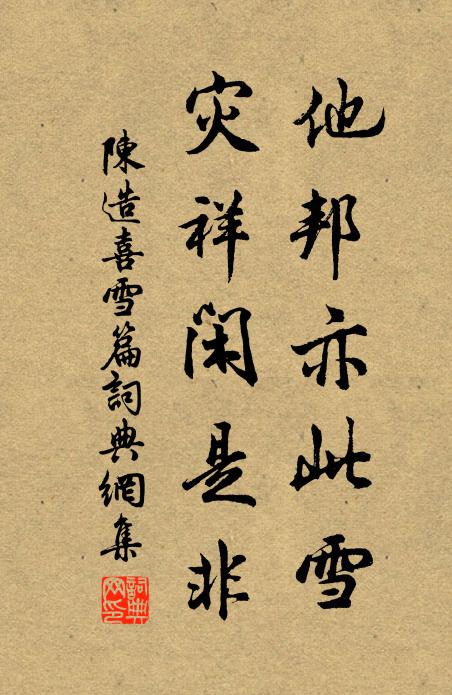 他邦亦此雪
灾祥闲是非
陳造喜雪篇詞典網集
詞典网印